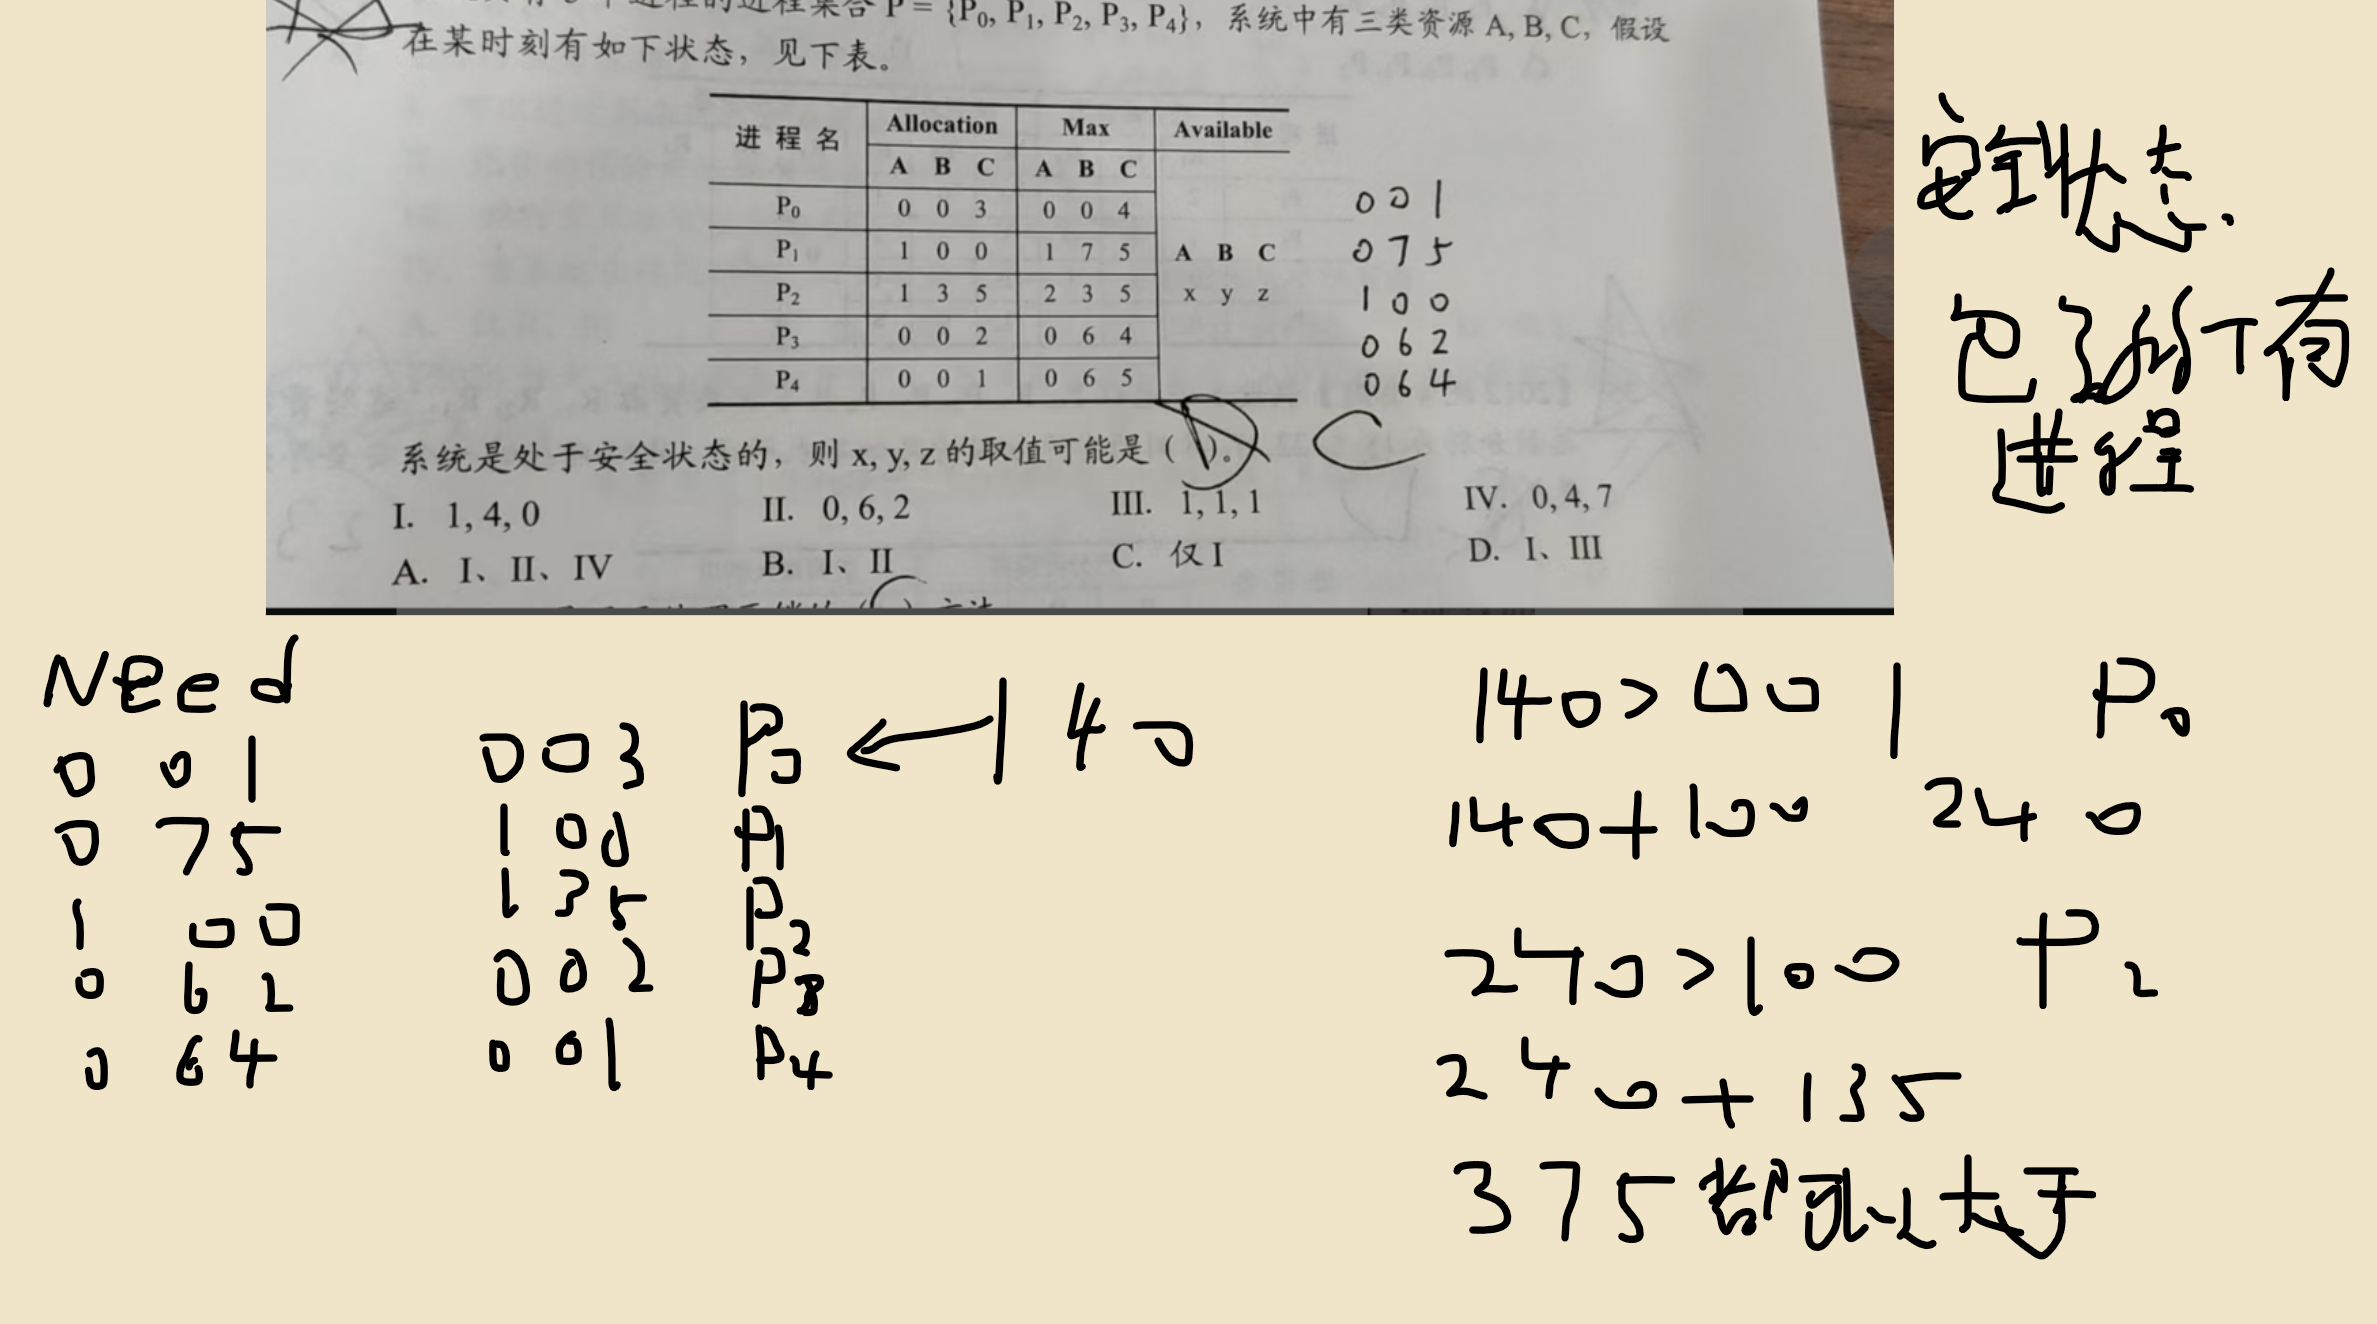 P = {P0, P1, P2, P3, P4}，系统中有三类资源 A, B, C，假设
在某时刻有如下状态，见下表。
进程名 Allocation Max Available
A B C A B C
P0 0 0 3 0 0 4
P1 1 0 0 1 7 5 A B C
P2 1 3 5 2 3 5 x y z
P3 0 0 2 0 6 4
P4 0 0 1 0 6 5
0 0 1
0 7 5
1 0 0
0 6 2
0 6 4
系统是处于安全状态的，则 x, y, z 的取值可能是（ ）。
C
I. 1, 4, 0 II. 0, 6, 2 III. 1, 1, 1 IV. 0, 4, 7
A. I、II、IV B. I、II C. 仅 I D. I、III
安全状态.
进程
Need
0 0 1
0 7 5
1 0 0
0 6 2
0 6 4
0 0 3 P0 1 4 0
1 0 0 P1
1 3 5 P2
0 0 2 P3
0 0 1 P4
140 > 00 1 P0
140+100 24 0
240 > 100 P2
240 + 135
375 都可以大于